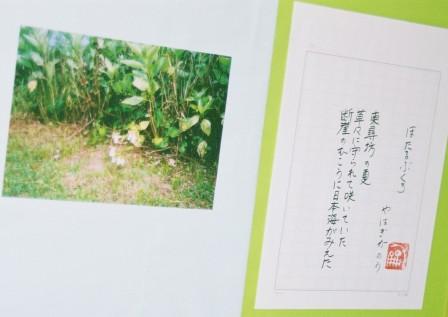 ほたるぶくろ
やはぎかのう
東尋坊の夏
草々に守られて咲いていた
断崖のむこうに日本海がみえた